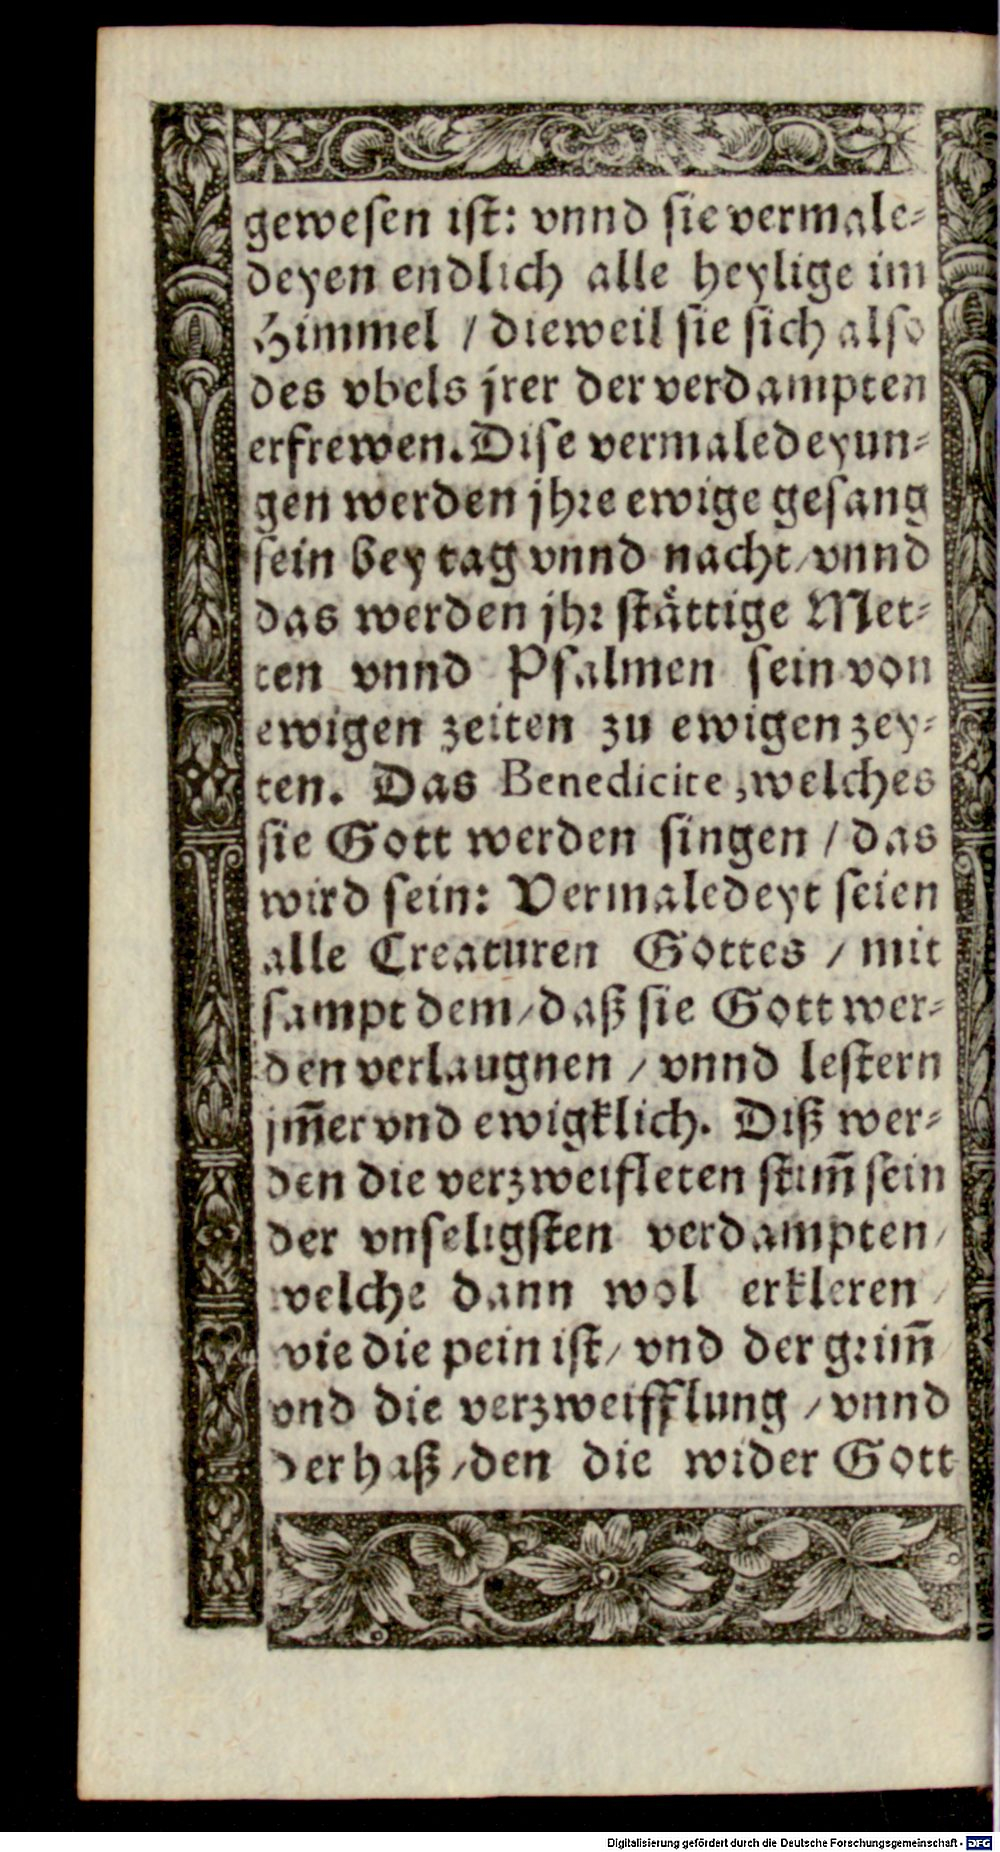 gewesen ist: vnnd sie vermale⸗
deyen endlich alle heylige im
Himmel / dieweil sie sich also
des vbels jrer der verdampten
erfrewen. Dise vermaledeyun⸗
gen werden jhre ewige gesang
sein bey tag vnnd nacht / vnnd
das werden jhr stättige Met⸗
ten vnnd Psalmen sein von
ewigen zeiten zu ewigen zey⸗
ten. Das Benedicite, welches
sie Gott werden singen / das
wird sein: Vermaledeyt seien
alle Creaturen Gottes / mit
sampt dem / daß sie Gott wer⸗
den verlaugnen / vnnd lestern
jm̃er vnd ewigklich. Diß wer⸗
den die verzweifleten stim̃ sein
der vnseligsten verdampten /
welche dann wol erkleren /
wie die pein ist / vnd der grim̃ /
vnd die verzweifflung / vnnd
der haß / den die wider Gott
Digitalisierung gefördert durch die Deutsche Forschungsgemeinschaft - DFG